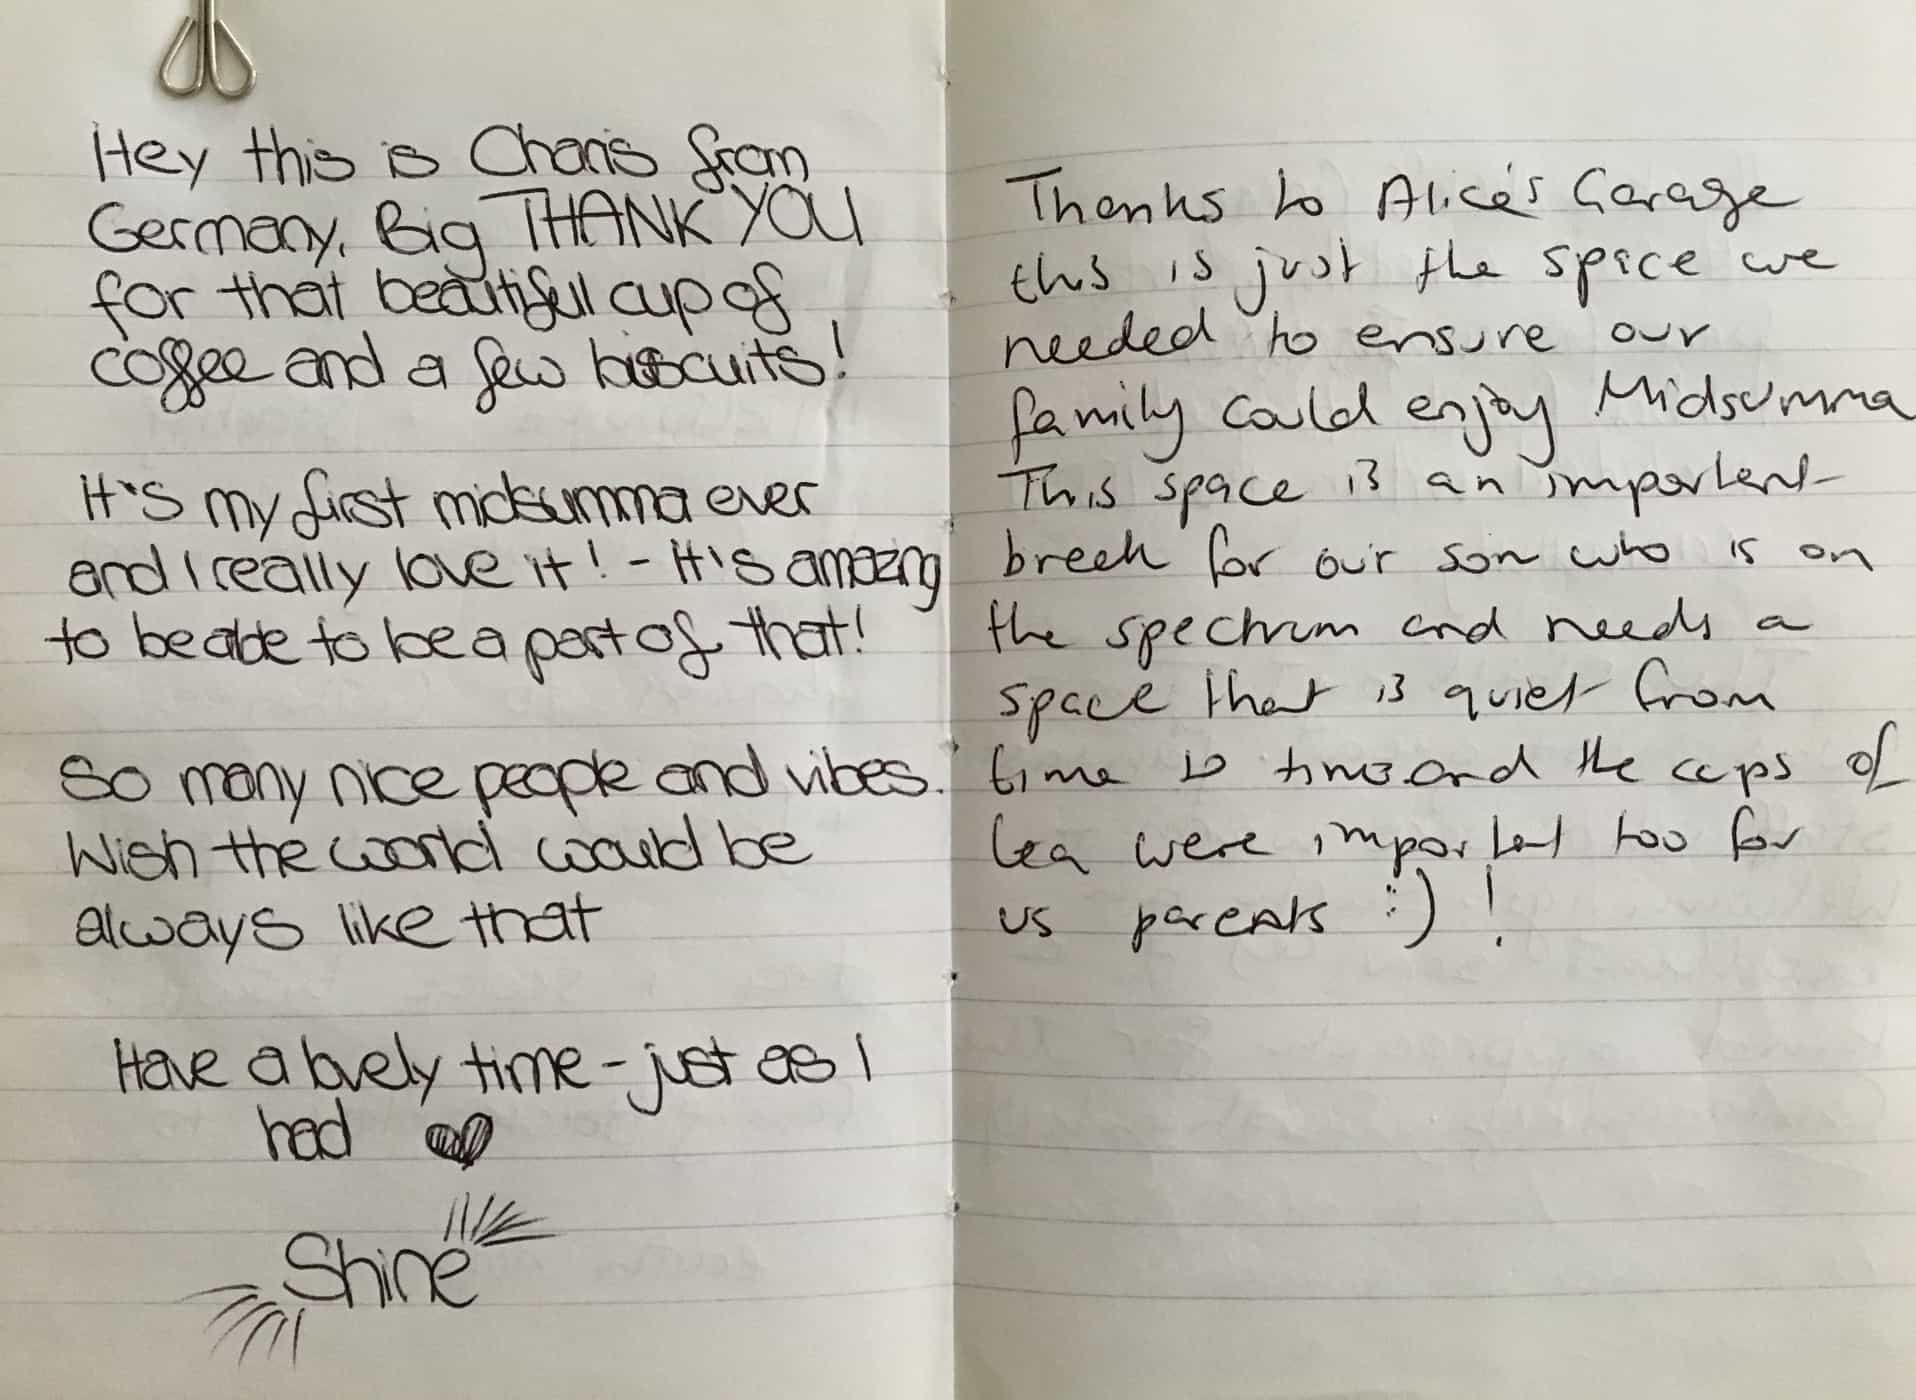 Hey this is Charis from
Germany. Big THANK YOU
for that beautiful cup of
coffee and a few biscuits!
It's my first midsumma ever
and I really love it! - It's amazing
to be able to be a part of that!
So many nice people and vibes.
Wish the world would be
always like that
Have a lovely time - just as I
had
Shine
Thanks to Alice's Garage
this is just the space we
needed to ensure our
family could enjoy Midsumma
This space is an important
break for our son who is on
the spectrum and needs a
space that is quiet from
time to time and the cups of
tea were important too for
us parents :) !